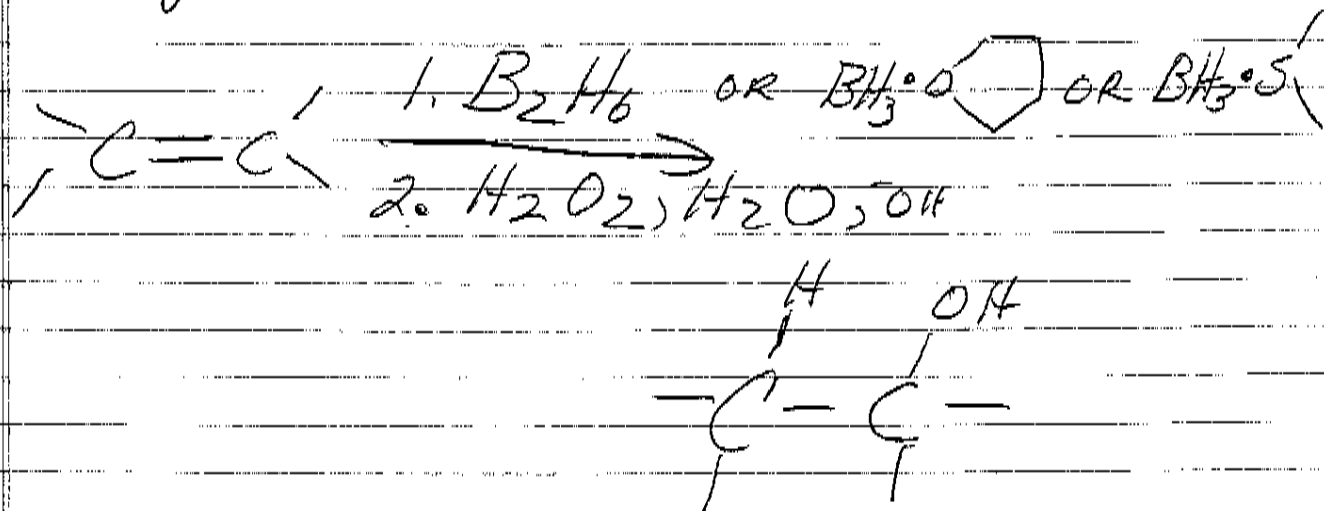 1. B2H6 OR BH3•O OR BH3•S
C=C
2. H2O2, H2O, -OH
H OH
-C-C-